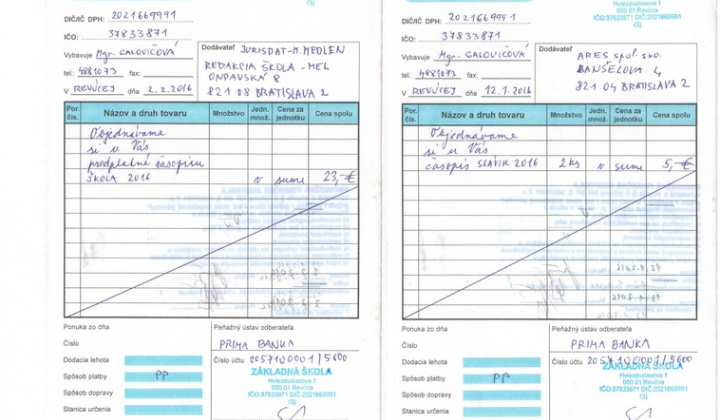 DIČ/IČ DPH: 2021669991
IČO: 37833871
Vybavuje Mgr. CALOVIČOVÁ
tel.: 4881073 fax:
V REVÚCEJ dňa 2.2.2016
Dodávateľ JURISDAT-M.MEDLEN
REDAKCIA ŠKOLA - MEL
ONDAVSKÁ 8
821 08 BRATISLAVA 2
Por. čís. Názov a druh tovaru Množstvo Jedn. množ. Cena za jednotku Cena spolu
Objednávame
si u Vás
predplatné časopisu
ŠKOLA 2016 v sume 23,-€
Ponuka zo dňa
Číslo
Dodacia lehota
Spôsob platby PP
Spôsob dopravy
Stanica určenia
Peňažný ústav odberateľa
PRIMA BANKA
Číslo účtu 2057100001/5600
ZÁKLADNÁ ŠKOLA
Hviezdoslavova 1
050 01 Revúca
IČO:37833871 DIČ:2021669991
(3)
Hviezdoslavova 1
050 01 Revúca
IČO:37833871 DIČ:2021669991
(3)
DIČ/IČ DPH: 2021669991
IČO: 37833871
Vybavuje Mgr. CALOVIČOVÁ
tel.: 4881073 fax:
V REVÚCEJ dňa 12.1.2016
Dodávateľ
ARES spol. s r.o.
BANŠELOVA 4
821 04 BRATISLAVA 2
Por. čís. Názov a druh tovaru Množstvo Jedn. množ. Cena za jednotku Cena spolu
Objednávame
si u Vás
časopis SLAVIK 2016 2 ks v sume 5,-€
Ponuka zo dňa
Číslo
Dodacia lehota
Spôsob platby PP
Spôsob dopravy
Stanica určenia
Peňažný ústav odberateľa
PRIMA BANKA
Číslo účtu 2057100001/5600
ZÁKLADNÁ ŠKOLA
Hviezdoslavova 1
050 01 Revúca
IČO:37833871 DIČ:2021669991
(3)